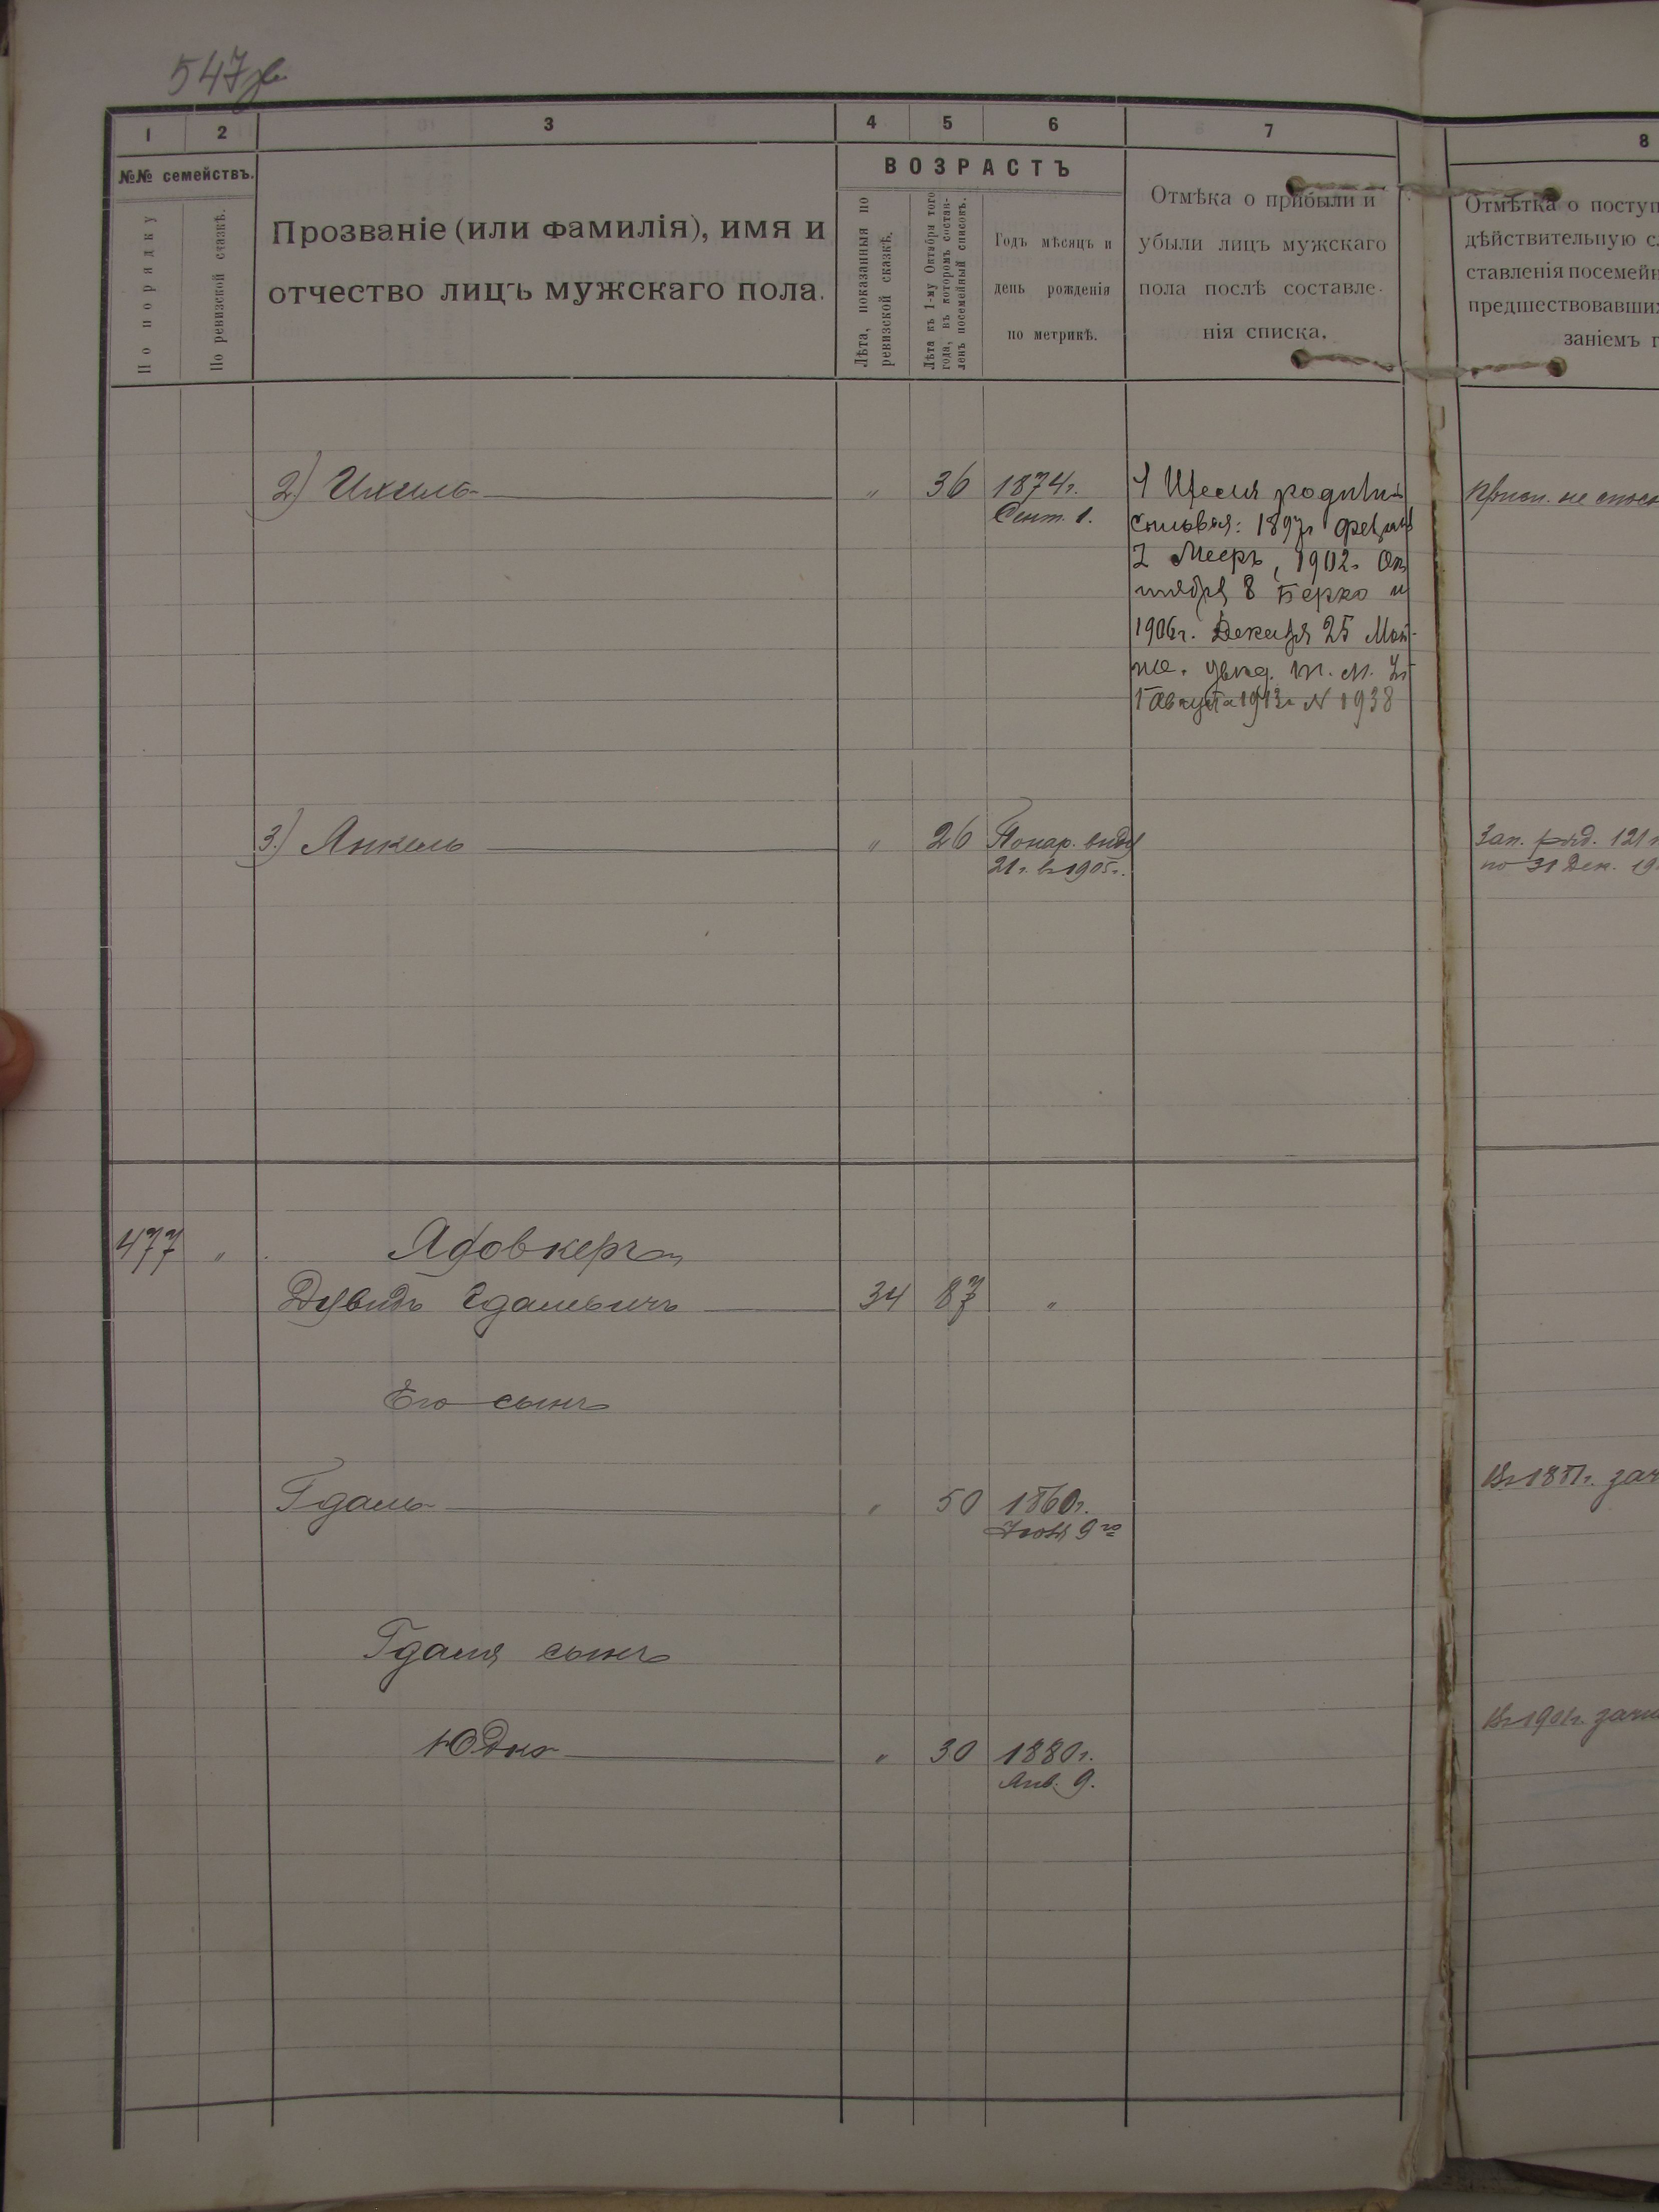 547
1 2 3 4 5 6 7 8
№№ семействъ.
По порядку
По ревизской сказкѣ.
Прозваніе (или фамилія), имя и
отчество лицъ мужскаго пола.
ВОЗРАСТЪ
Лѣта, показанныя по
ревизской сказкѣ.
Лѣта къ 1-му Октября того
года, въ которомъ состав-
ленъ посемейный списокъ.
Годъ мѣсяцъ и
день рожденія
по метрикѣ.
Отмѣка о прибыли и
убыли лицъ мужскаго
пола послѣ составле-
нія списка.
Отмѣтка о поступ
дѣйствительную сл
ставленія посемейн
предшествовавших
заніемъ г
2) Ихель " 36 1874г.
Сент. 1.
родились
сыновья: 1897г
Мееръ, 1902г. Ок
тября 8 Берко и
1906г. Декабря 25 Мой-
ше. увед. М.
1 Августа 1913г N 1938
3.) Янкель " 26 По нар. виду
21 г. въ 1905г.
Зап. ряд. 121
по 31 Дек. 19
477 " Ядовкеръ
Дувидъ Гдальевичъ 34 87 "
Его сынъ
Гдаль " 50 1860г.
9го
Гдаля сынъ
Юдко " 30 1880г.
Янв. 9.
Въ 1881г. зач
Въ 1901г. зачи